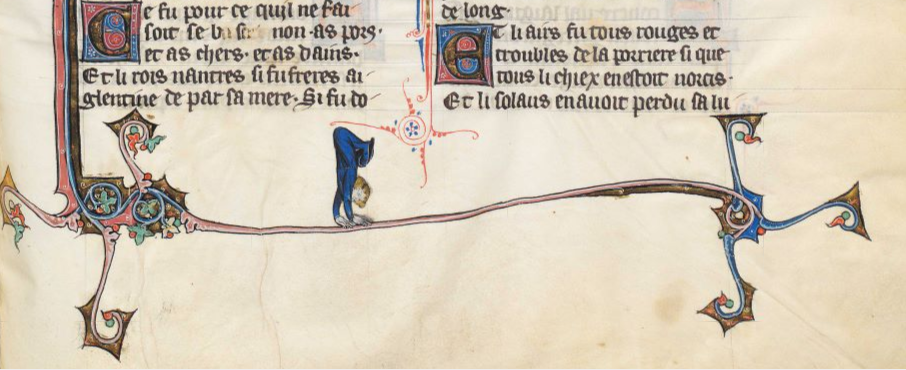 Ce fu pour ce quil ne fai
soit se non as pors.
et as chers. et as dains.
Et li rois nantres si fu freres ai
glentine de par sa mere. Si fu do
de long
Et li airs fu tous rouges et
troubles de la porriere si que
tous li chiex en estoit norcis.
Et li solaus en auoit perdu sa lu